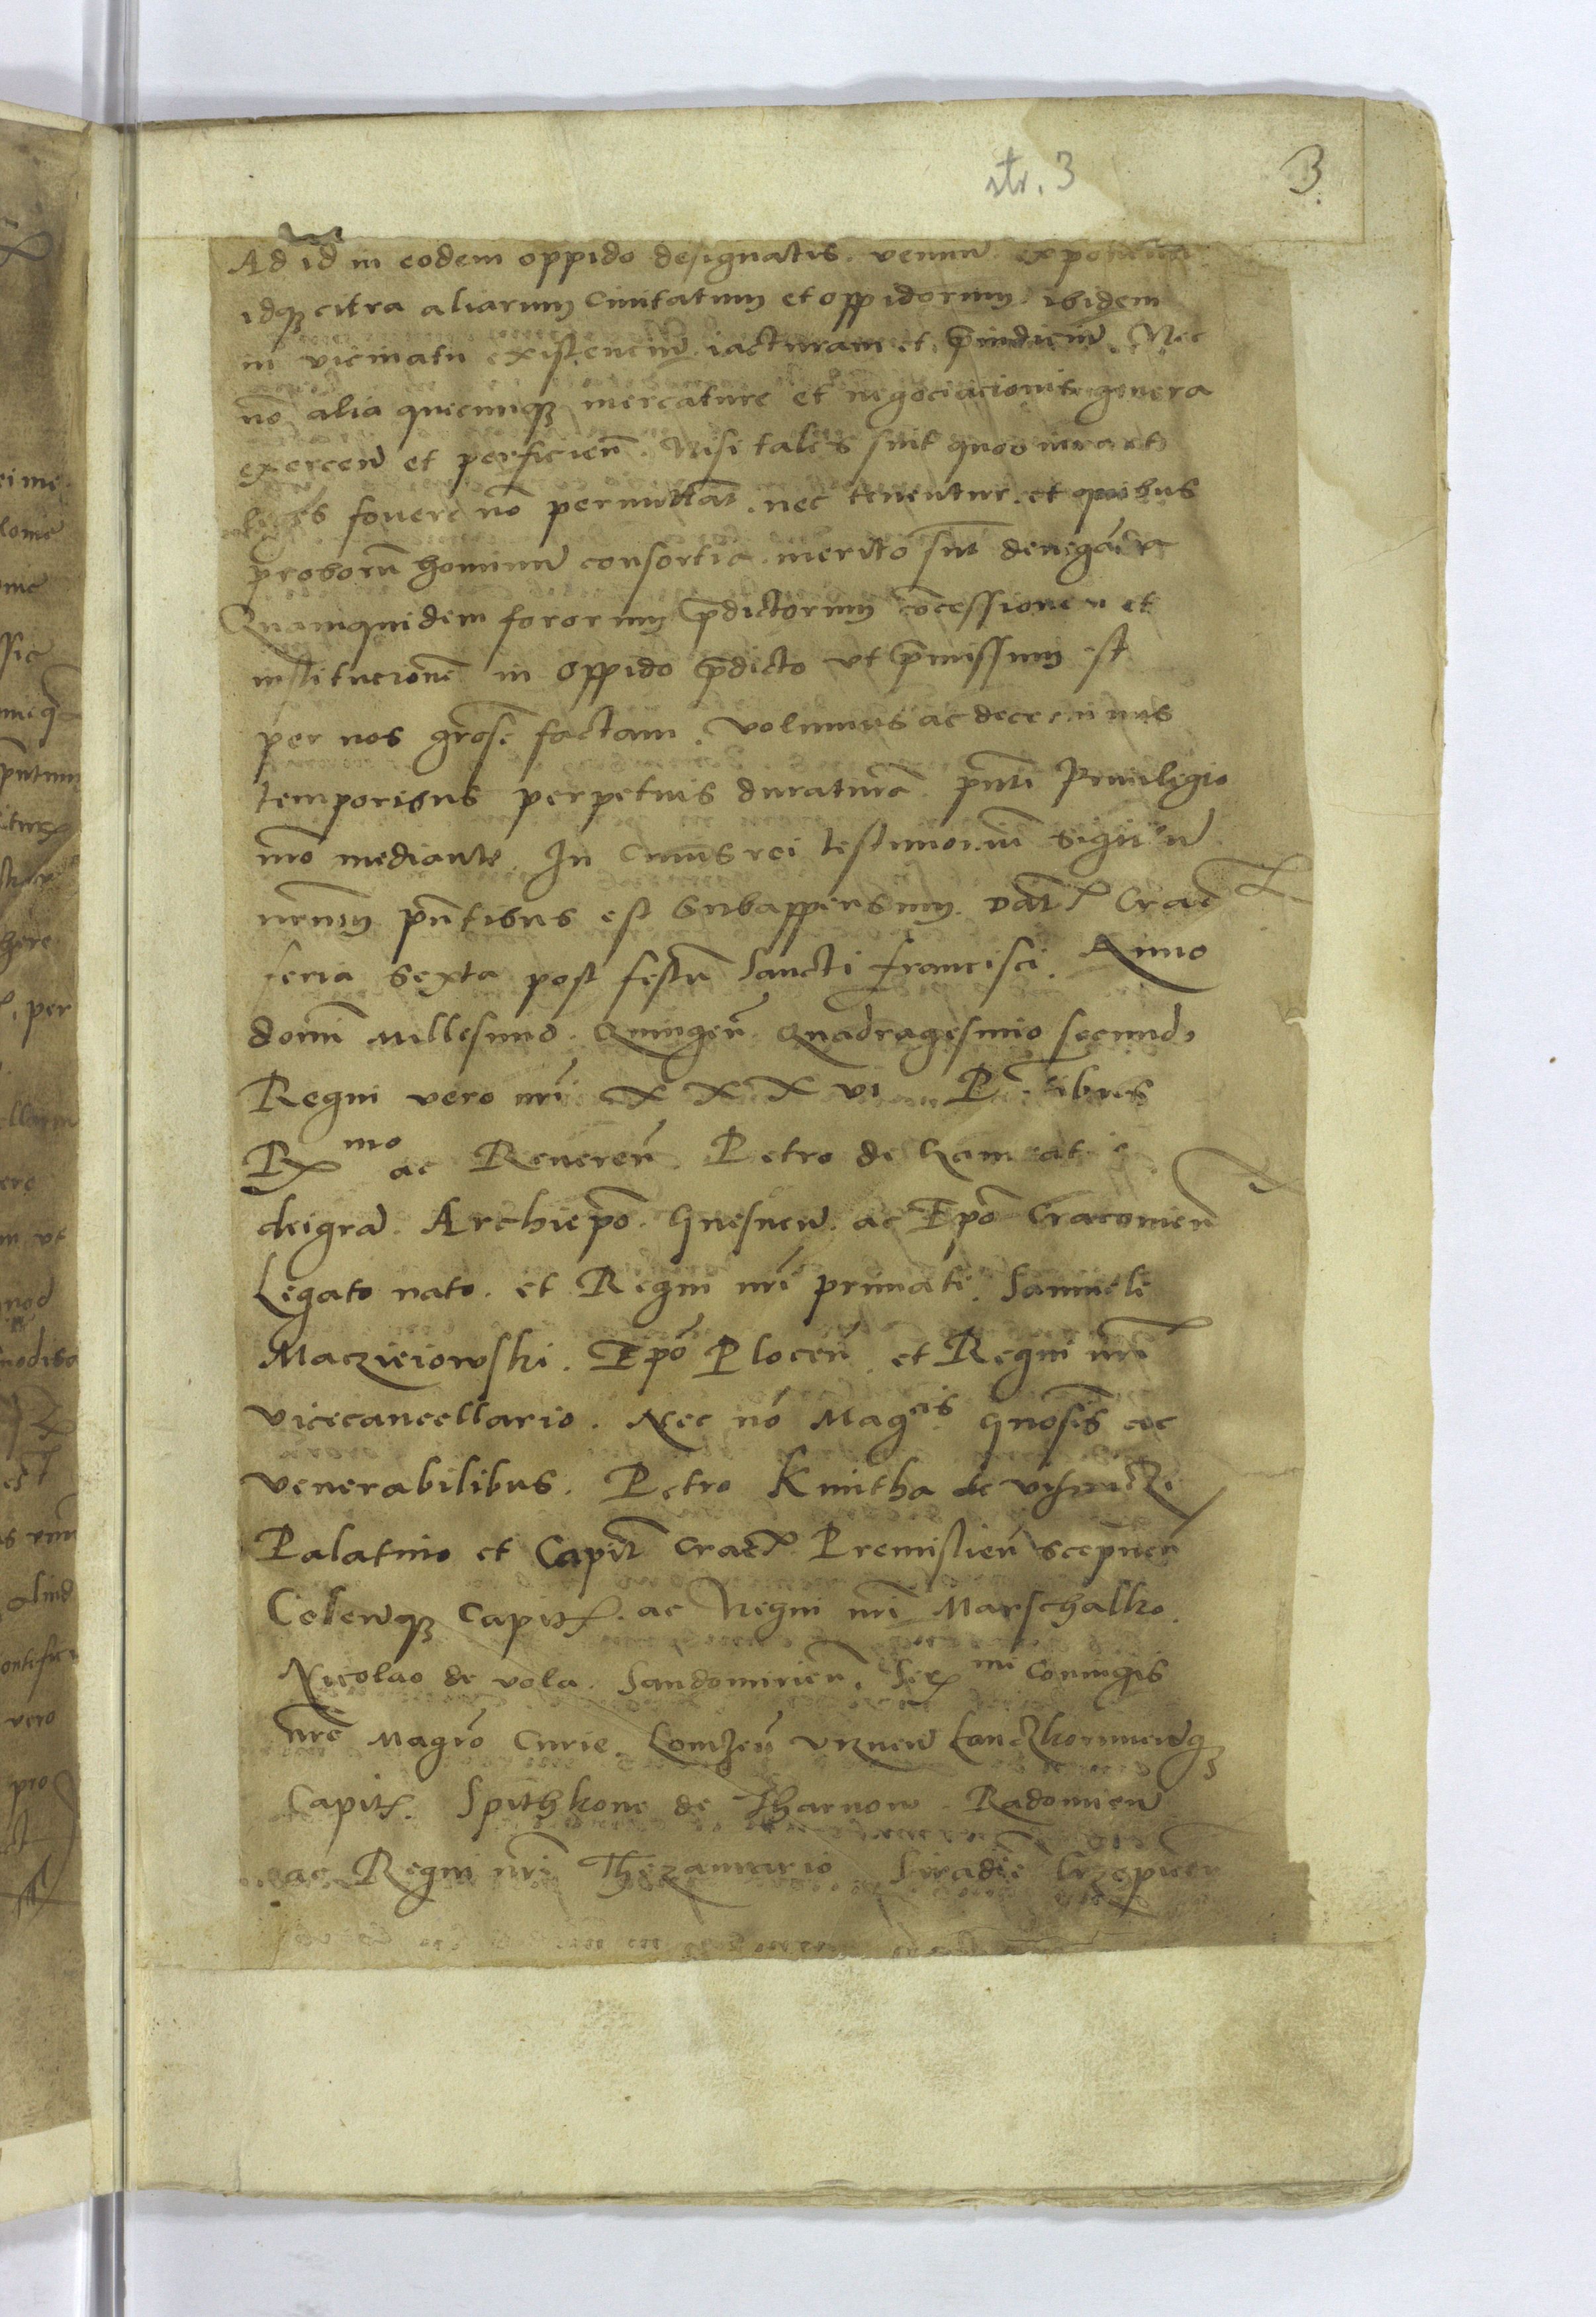 str. 3
3
Ad id in eodem oppido designatis. venum exponen
idq3 citra aliarum Civitatum et oppidorum ibidem
in vicinatu existencium iacturam et p̄iudicium. Nec
nō alia quecunq3 mercature et negociacionis genera
exercen̄ et perficien̄. Nisi tales sint quos iura et
leges fovere nō permittāt. nec tenentur. et quibus
proborū hominum consortia merito sūt denegāda
Quamquidem fororum p̄dictorum cōcessionem et
institucionē in oppido p̄dicto ut p̄missum est
per nos grōse factam. Volumus ac decernimus
temporibus perpetuis duraturā. pn̄ti Privilegio
nr̄o mediante. In Cuius rei testimonium Sigillū
nrūm pn̄tibus est Subappensum. Dat Crac
feria Sexta post festū Sancti Francisci. Anno
domī Millesimo. Quingen̄. Quadragesimo secundo
Regni vero nr̄i XXXVI P̄ntibus
Rmo ac Reveren̄. Petro de Gamrat
deigra. Archiepō. Gnesnen̄. ac Epō Cracovien̄
Legato nato. et Regni nr̄i primate. Samuele
Maczieiowski. Epō Plocen̄. et Regni nr̄i
vicecancellario. Nec nō Magcis Gnōsis ac
venerabilibus. Petro Kmitha de Visnicze
Palatino et Capit Crac. Premislien̄ Scepuen̄
Colenq3 Capit. ac Regni nr̄i Marschalko.
Nicolao de vola. Sandomirien̄. Ser mi Coniugis
nr̄e Magrō Curie. Lomzen̄ Viznen̄ Lanczkorunenq3
Capit. Spithkone de Tharnow. Radomien̄
ac Regni nr̄i Thezaurario Siradiē Crzepicen̄